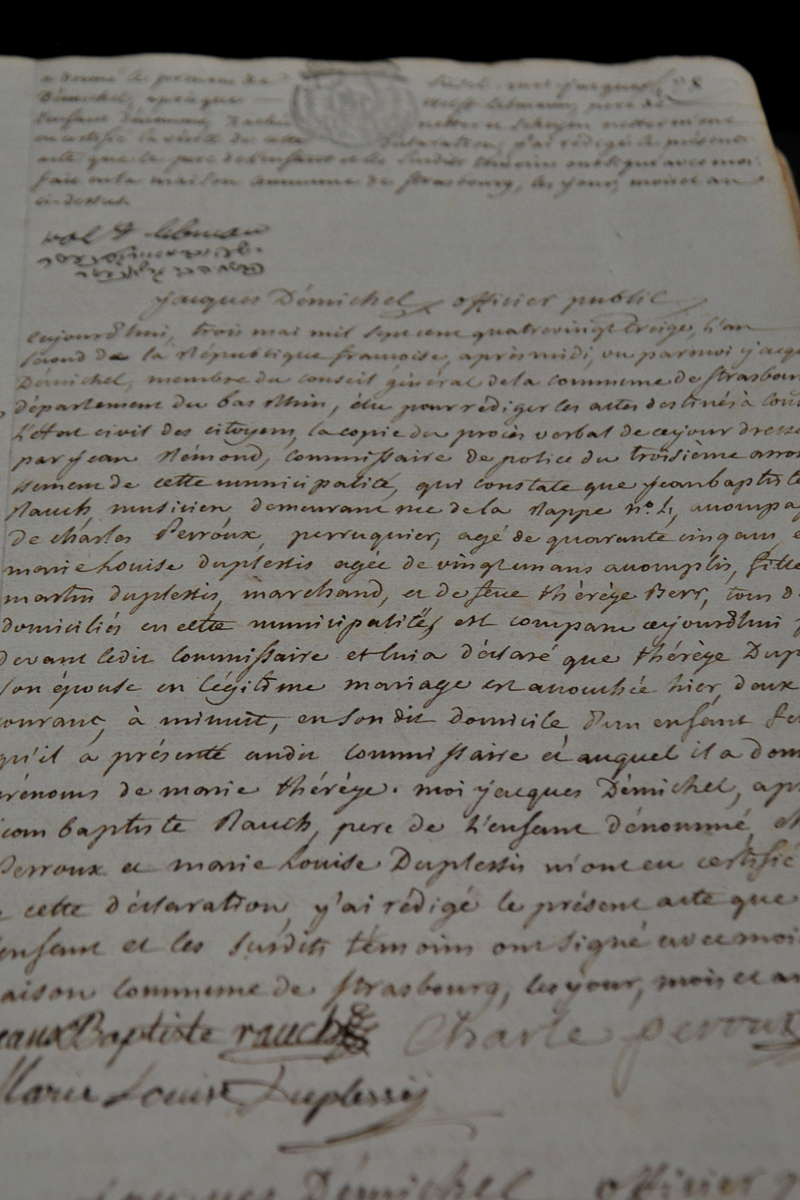 a donné le prénom de
Démichel, après que Wolff Lebmann, père de
l'enfant
en certifié la vérité de cette déclaration, j'ai rédigé le présent
acte que le père de l'enfant et les susdits témoins ont signé avec moi.
fait en la maison commune de Strasbourg, les jour, mois et an
ci-dessus.
wolf lebman
Jacques Démichel officier public
Aujourd'hui, trois mai mil sept cent quatrevingt treize, l'an
second de la République françoise, après midi, vu par moi Jacq
Démichel, membre du conseil général de la commune de Strasbour
département du bas Rhin, élu pour rédiger les actes destinés à cons
l'état civil des citoyens, la copie du procès verbal de cejour dressé
par Jean Rémond, commissaire de police du troisième arron
sement de cette municipalité, qui constate que Jean baptiste
Rauch, musicien, demeurant rue de la Nappe n.° 4, accompag
de Charles Perroux, perruquier, agé de quarante cinq ans, e
marie Louise duplessis agée de vingt un ans accomplis, fille
martin duplessis, marchand, et de feue thérèze Berr, tous d
domiciliés en cette municipalité, est comparu aujourdhui p
devant ledit Commissaire et lui a déclaré que thérèze Dup
son épouse en légitime mariage est accouchée hier, deux
courant, à minuit, en son dit domicile d'un enfant fe
qu'il a présenté audit commissaire et auquel il a don
prénoms de marie thérèze. moi Jacques Démichel, apr
jean baptiste Rauch, pere de l'enfant dénommé, et
Perroux et marie Louise Duplessis m'ont eu certifié
e cette déclaration, j'ai rédigé le présent acte que
enfant et les susdits témoins ont signé avec moi
aison commune de Strasbourg, les jour, mois et an
jeanx Baptiste rauch Charle peroux
Marie Louise Duplessis
Jacques Démichel officier p